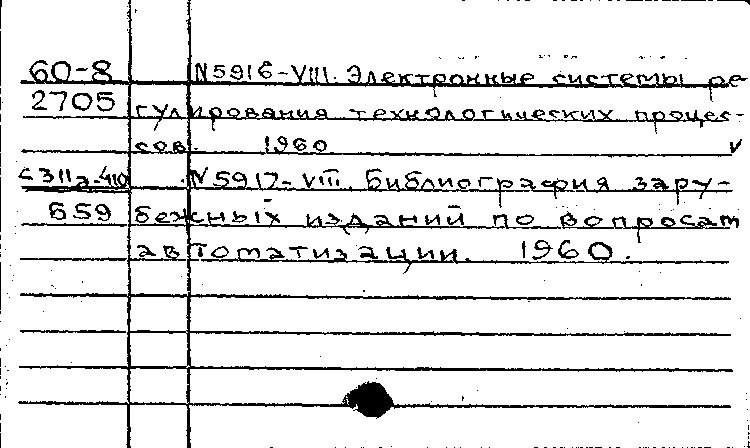 60-8 N5916-VIII. Электронные системы ре
2705 гулирования технологических процес-
сов. 1960 v
С311а-410 N5917-VIII. Библиография зару-
659 бежных изданий по вопросам
автоматизации. 1960.